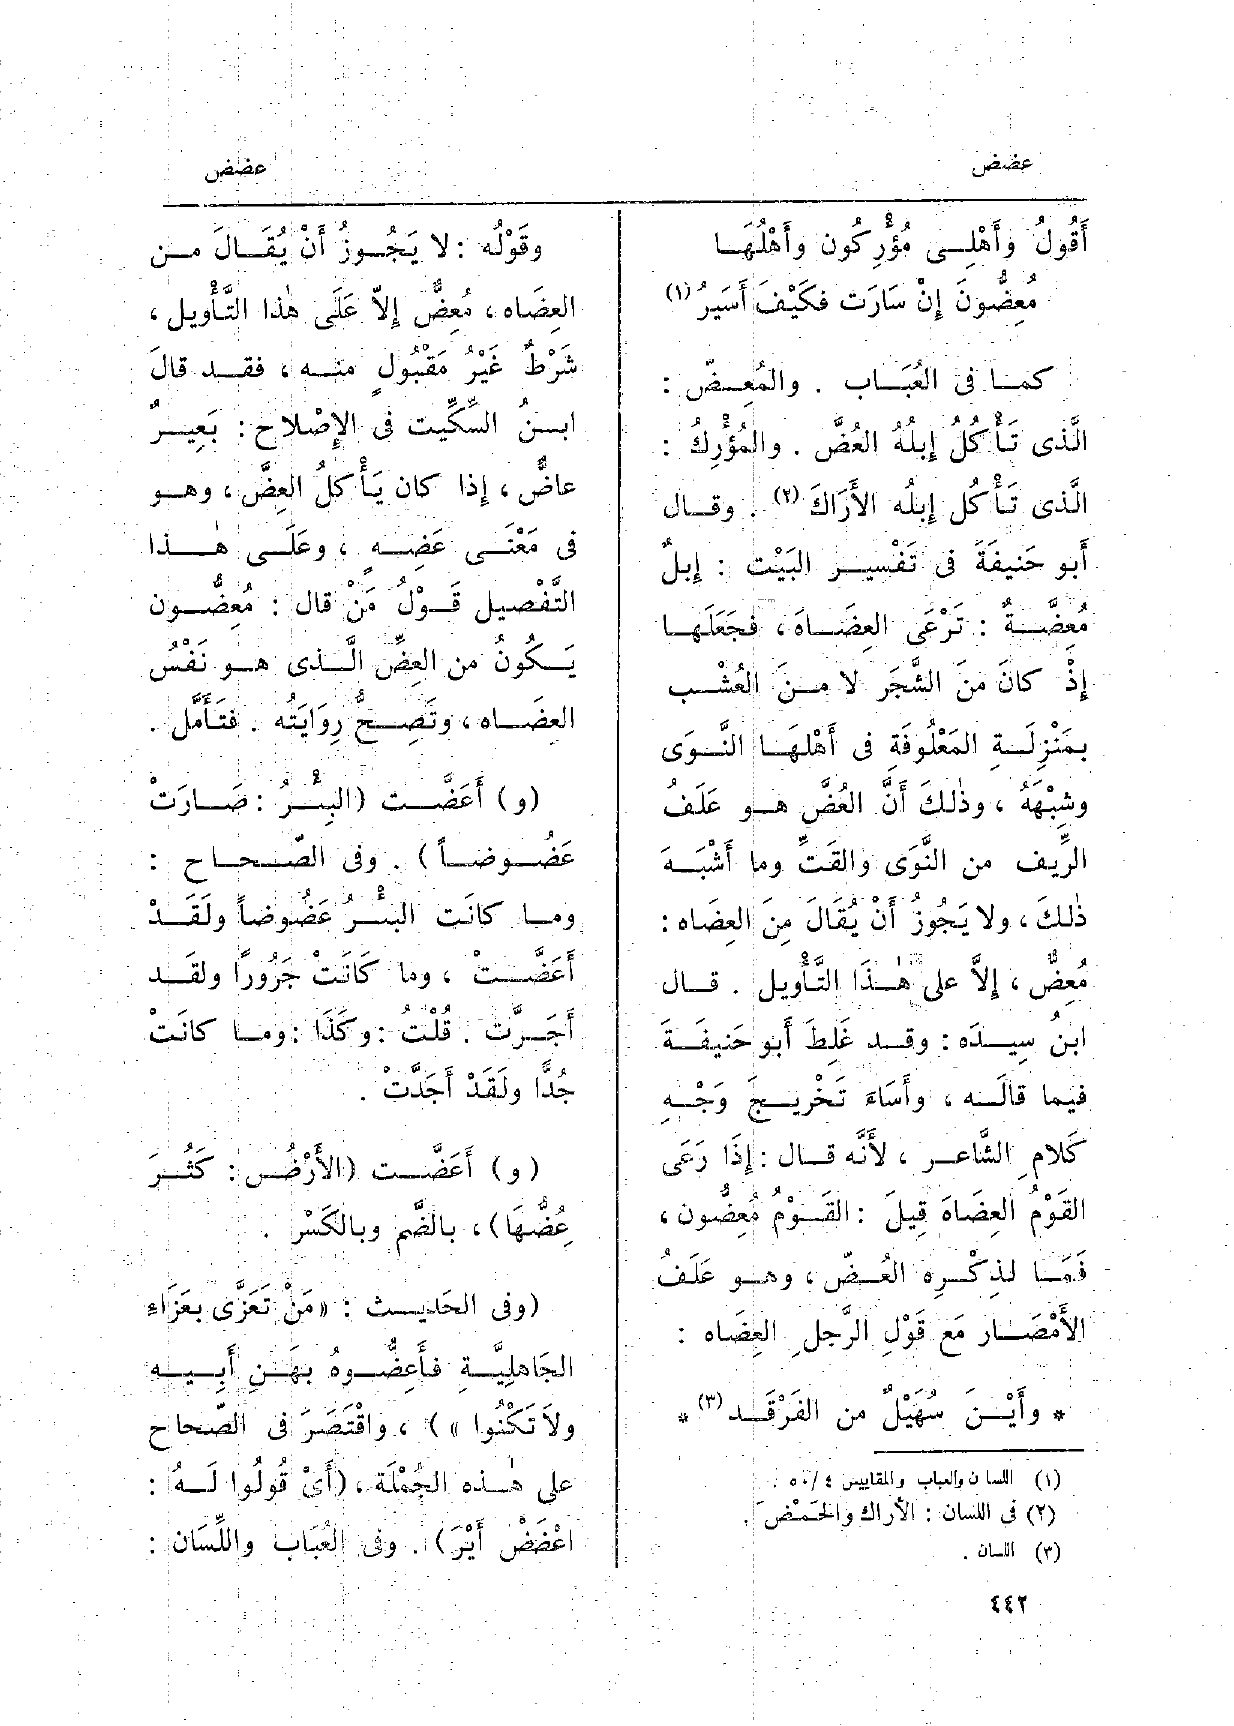 عضض
عضض
أَقُولُ وأَهْلِى مُؤْرِكُون وأَهْلُهَا
مُعِضُّونَ إِنْ سَارَت فكَيْفَ أَسَيرُ (١)
كما فى العُبَاب . والمُعِضّ :
الَّذى تَأْكُلُ إِبلُهُ العُضَّ . والمُؤْرِكُ :
الَّذى تَأْكُل إِبلُه الأَرَاكَ (٢) . وقال
أَبو حَنيفَةَ فى تَفْسير البَيْت : إِبلٌ
مُعِضَّةٌ : تَرْعَى العِضَاهَ ، فجَعَلَها
إِذْ كانَ مَنَ الشَّجَر لا منَ العُشْب
بمَنْزِلَةِ المَعْلُوفَةِ فى أَهْلِهَا النَّوَى
وشِبْهَهُ ، وذٰلكَ أَنَّ العُضَّ هو عَلَفُ
الرِّيف من النَّوَى والقَتِّ وما أَشْبَهَ
ذٰلكَ ، ولا يَجُوزُ أَنْ يُقَالَ مِنَ العِضَاه :
مُعِضٌّ ، إِلاَّ على هٰذَا التَّأْويل . قال
ابنُ سِيدَه : وقد غَلِطَ أَبو حَنيفَةَ
فيما قالَه ، وأَسَاءَ تَخْريجَ وَجْهِ
كَلامِ الشَّاعر ، لأَنَّه قال : إِذَا رَعَى
القَوْمُ العِضَاهَ قِيلَ : القَوْمُ مُعِضُّون ،
فَمَا لذِكْرِه العُضّ ، وهو عَلَفُ
الأَمْصَار مَع قَوْلِ الرَّجلِ العِضَاه :
* وأَيْنَ سُهَيْلٌ من الفَرْقَد (٣) *
(١) اللسان والعباب والمقاييس ٤ / ٥٠ .
(٢) فى اللسان : الأراك والحَمْضَ .
(٣) اللسان .
وقَوْلُه : لا يَجُوزُ أَنْ يُقَالَ من
العِضَاه ، مُعِضٌّ إِلاّ عَلَى هٰذا التَّأْويل ،
شَرْطٌ غَيْرُ مَقْبُولٍ منه ، فقد قالَ
ابنُ السِّكِّيت فى الإِصْلاح : بَعِيرٌ
عاضٌّ ، إِذا كان يَأْكلُ العِضَّ ، وهو
فى مَعْنَى عَضِهٍ ، وعَلَى هٰذا
التَّفْصيل قَوْلُ مَنْ قال : مُعِضُّون
يَكُونُ من العِضِّ الَّذى هو نَفْسُ
العِضَاه ، وتَصِحُّ رِوَايَتُه . فتَأَمَّل .
(و) أَعَضَّت (البِئْرُ : صَارَتْ
عَضُوضاً) . وفى الصّحاح :
وما كانَت البئْرُ عَضُوضاً ولَقَدْ
أَعَضَّتْ ، وما كَانَتْ جَرُورًا ولقد
أَجَرَّت . قُلْتُ : وكَذَا : وما كانَتْ
جُدًّا ولَقَدْ أَجَدَّتْ .
(و) أَعَضَّت (الأَرْضُ : كَثُرَ
عِضُّهَا) ، بالضَّم وبالكَسْر .
(وفى الحَديث : « مَنْ تَعَزَّى بعَزَاءِ
الجَاهليَّةِ فأَعِضُّوهُ بهَنِ أَبيه
ولاَ تَكْنُوا ») ، واقْتَصَرَ فى الصّحاح
على هٰذه الجُمْلَة ، (أَىْ قُولُوا لَهُ :
اعْضَضْ أَيْرَ) . وفى العُبَاب واللِّسَان :
٤٤٢